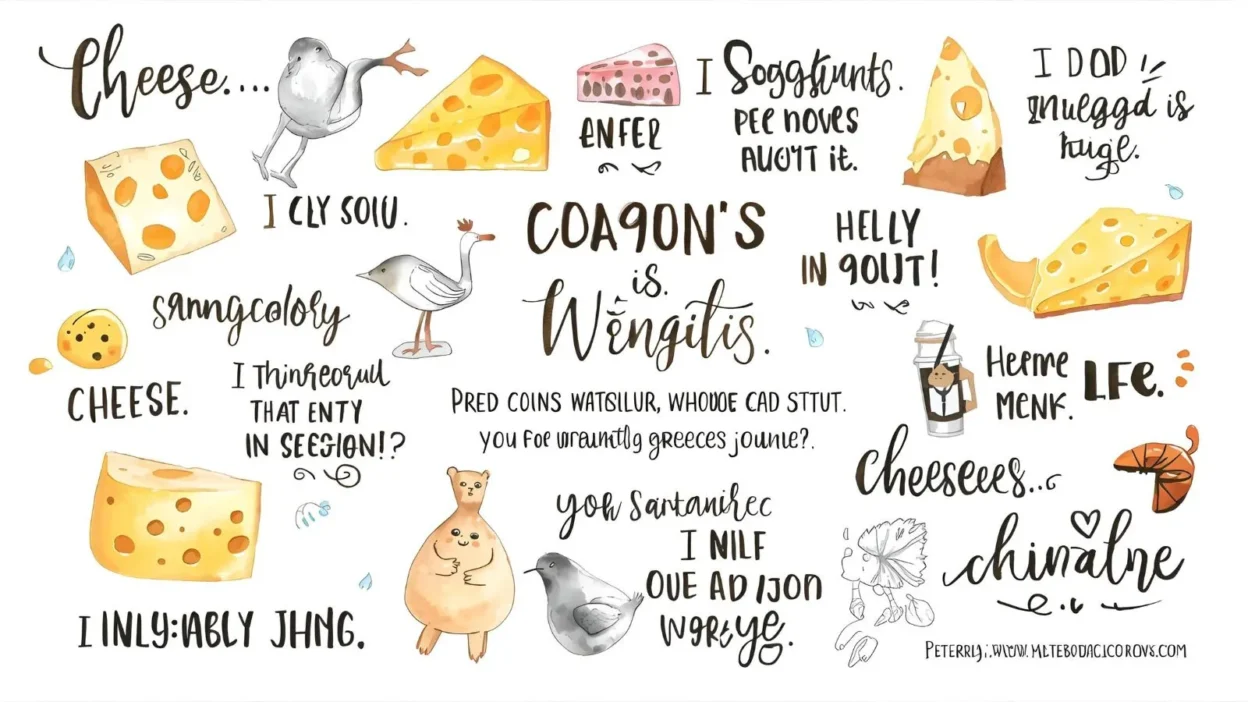 Cheese....
ENFER
I Soggfunts.
PEE NOVES
AUOYT iE.
I DOD
gnuеggd is
huge.
I CLY SOIU.
COA9ON'S
is.
Wengitis.
HELLY
IN 9OUJT!
sanngcolory
CHEESE.
I Thinreoruil
THAT ENTY
IN SEEGION!?
PRED COINS WATSILUR, WHOUOE CAD STTUT.
YOU FOE wraumtlg greeces jounie?.
HEFME
MENK.
LFC.
Cheeseees...
yoh Santanirec
I NILF
OUE AD IJON
WORE YE.
chinalne
I INLY:ABLY JHNG.